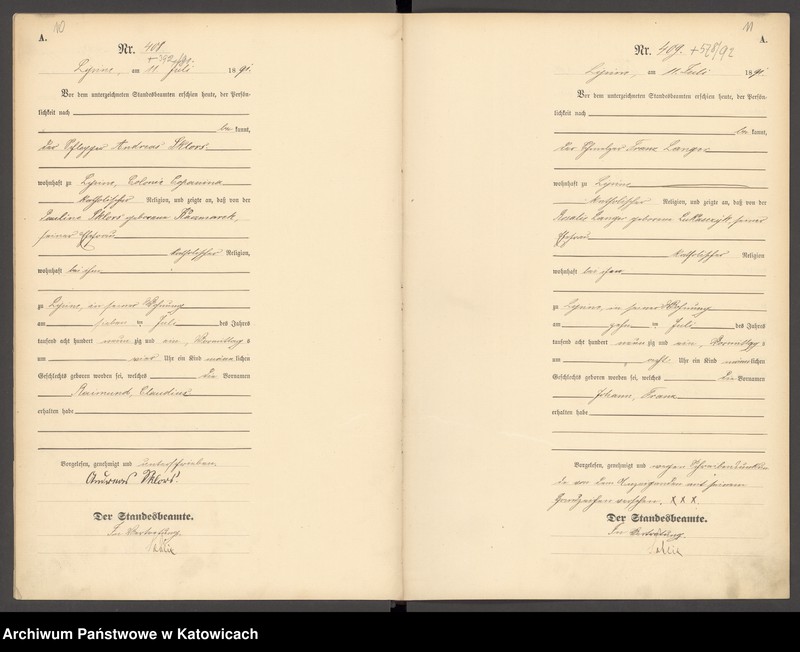 A.
Nr. 408
Lipine, am 11. Juli 1891.
Vor dem unterzeichneten Standesbeamten erschien heute, der Persön-
lichkeit nach
be kannt,
der Andreas Sklorz
wohnhaft zu Lipine, Colonie
katholischer Religion, und zeigte an, daß von der
Pauline Sklorz geborene
seiner Ehefrau
katholischer Religion,
wohnhaft bei ihm
zu Lipine, in seiner Wohnung
am sieben ten Juli des Jahres
tausend acht hundert neun zig und ein, Vormittag s
um vier Uhr ein Kind männlichen
Geschlechts geboren worden sei, welches die Vornamen
Raimund, Claudius
erhalten habe
Vorgelesen, genehmigt und unterschrieben.
Andreas Sklorz.
Der Standesbeamte.
In Vertretung.
11
A.
Nr. 409. +578/92
Lipine, am 11. Juli 1891.
Vor dem unterzeichneten Standesbeamten erschien heute, der Persön-
lichkeit nach
be kannt,
der Franz Langer
wohnhaft zu Lipine
katholischer Religion, und zeigte an, daß von der
Rosalie Langer geborene seiner
Ehefrau
katholischer Religion
wohnhaft bei ihm
zu Lipine, in seiner Wohnung
am zehn ten Juli des Jahres
tausend acht hundert neun zig und ein, Vormittag s
um acht Uhr ein Kind männlichen
Geschlechts geboren worden sei, welches die Vornamen
Johann, Franz
erhalten habe
Vorgelesen, genehmigt und wegen Schreibensunkun
de von dem Anzeigenden mit seinem
Handzeichen versehen. X X X.
Der Standesbeamte.
In Vertretung.
Archiwum Państwowe w Katowicach